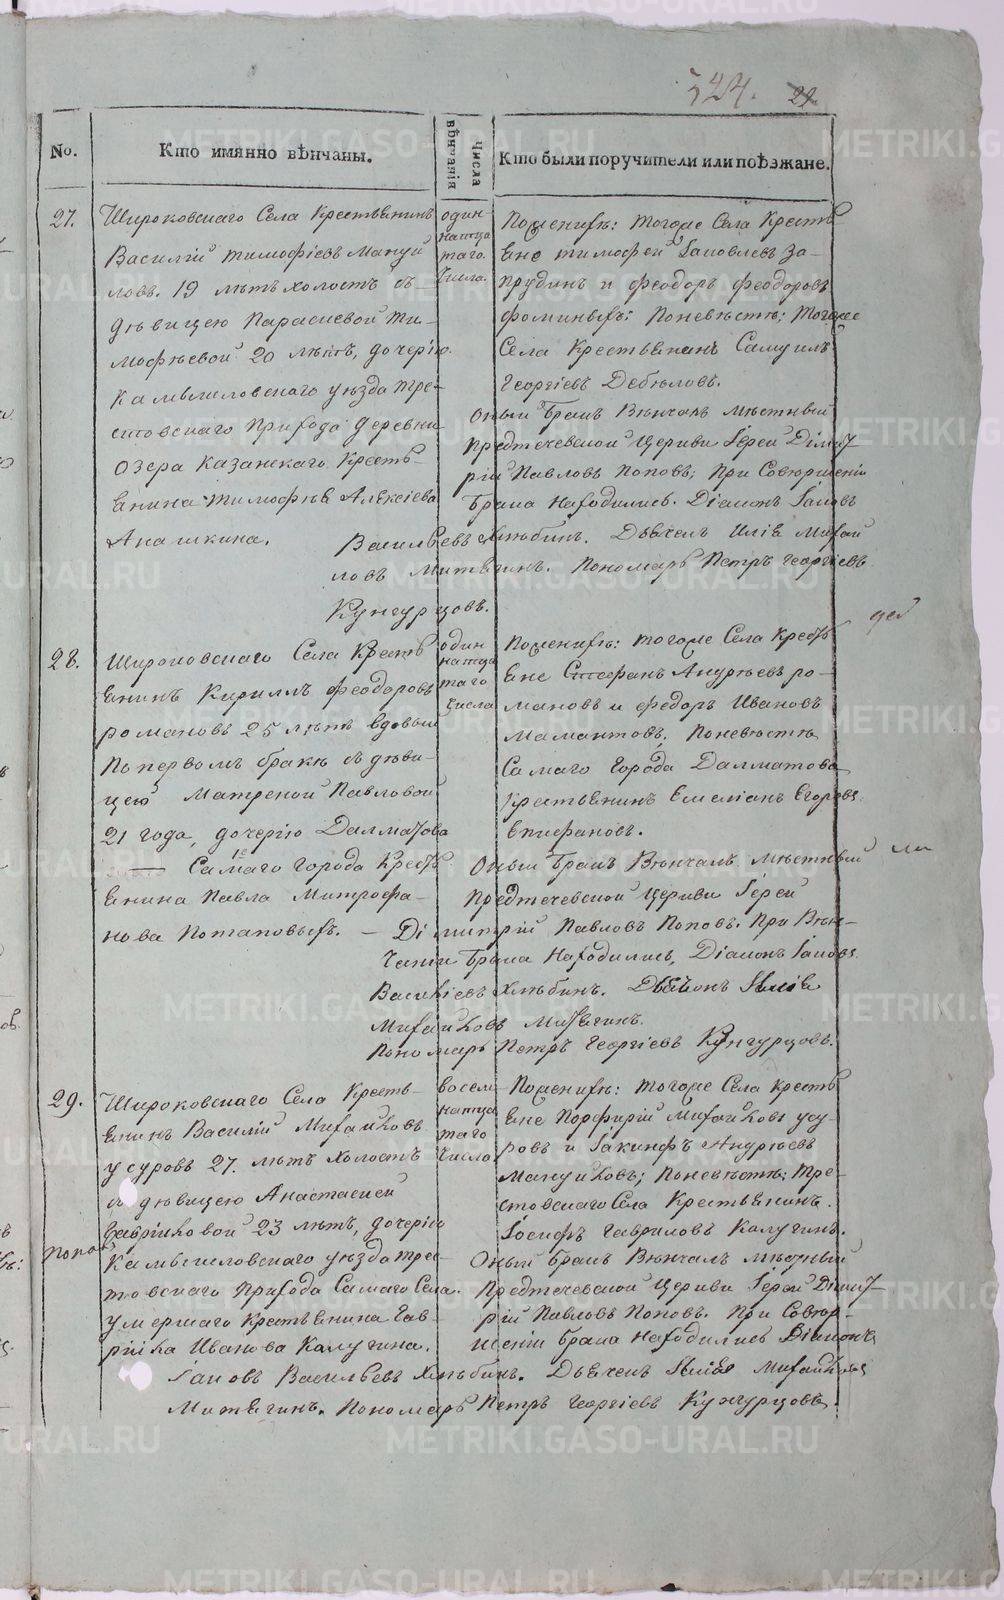 324. 29
No.
Кто имянно вѣнчаны.
Числа вѣнчанія
Кто были поручители или поѣзжане.
27.
Широковскаго Села Крестьянинъ
Василій Тимофіевъ Мануй
ловъ. 19 лѣтъ холостъ съ
дѣвицею Парасковой Ти-
мофѣевой 20 лѣтъ, дочерію
Камышловскаго уѣзда Тре-
стовскаго прихода деревни
Озера Казанскаго Кресть-
янина Тимофѣя Алексіева
Анашкина.
один
натца
таго
Числа.
По женихѣ: тогоже Села Кресть
яне Тимофей Іаковлевъ За-
прудинъ и Феодоръ Феодоровъ
Фоминыхъ; По невѣстѣ; Тогоже
Села Крестьянинъ Самуилъ
Георгіевъ Дебѣловъ.
Оный Бракъ Вѣнчалъ мѣстный
Предтечевской Церкви Іерей Димит
рій Павловъ Поповъ; При Совершеніи
Брака Находились. Діаконъ Іаковъ
Васильевъ Хлѣбинъ. Дьячекъ Илія Михай
ловъ Митягинъ. Пономарь Петръ Георгіевъ
Кунгурцовъ.
28.
Широковскаго Села Кресть
янинъ Кириллъ Феодоровъ
Романовъ 25 лѣтъ вдовый
По первомъ бракѣ съ дѣви-
цею Матреной Павловой
21 года, дочерію Далматова
Самаго города Кресть
янина Павла Митрофа-
нова Потаповыхъ.
один
натца
таго
Числа
По женихѣ: тогоже Села Кресть
яне Стефанъ Андрѣевъ Ро-
мановъ и Федоръ Ивановъ
Мамонтовъ, По невѣстѣ
Самаго города Далматова
Крестьянинъ Емеліанъ Егоровъ
Епифановъ.
Оный Бракъ Вѣнчалъ Мѣстный
Предтечевской Церкви Іерей
Димитрій Павловъ Поповъ. При Вѣн-
чаніи Брака Находились, Діаконъ Іаковъ
Василіевъ Хлѣбинъ. Дьячекъ Илія
Михайловъ Митягинъ.
Пономарь Петръ Георгіевъ Кунгурцовъ.
29.
Широковскаго Села Кресть-
янинъ Василій Михайловъ
Усуровъ 27. лѣтъ холостъ
съ дѣвицею Анастасіей
Гавриловой 23 лѣтъ, дочерію
Камышловскаго уѣзда Трес-
товскаго Прихода Самаго Села
умершаго Крестьянина Гав-
ріила Иванова Калугина.
восем
натца
таго
Числа
По женихѣ: тогоже Села Кресть
яне Порфирій Михайловъ Усу-
ровъ и Іакинфъ Андрѣевъ
Мануйловъ; По невѣстѣ: Тре-
стовскаго Села Крестьянинъ
Іосифъ Гавриловъ Калугинъ.
Оный Бракъ Вѣнчалъ мѣстный
Предтечевской Церкви Іерей Димит
рій Павловъ Поповъ. При Совер-
шеніи Брака Находились Діаконъ
Іаковъ Васильевъ Хлѣбинъ. Дьячекъ Илія Михайловъ
Митягинъ. Пономарь Петръ Георгіевъ Кунгурцовъ.
Попов
METRIKI.GASO-URAL.RU